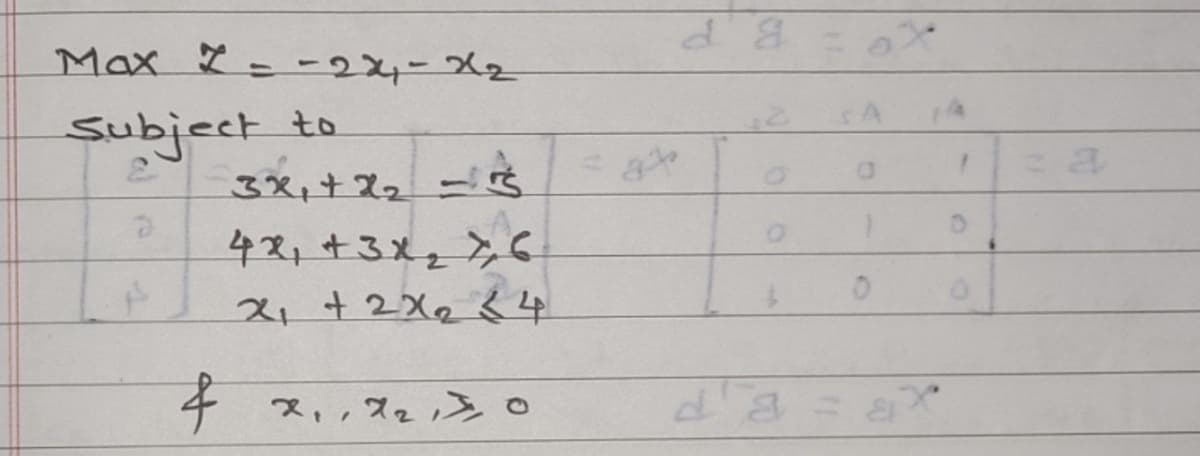 Max Z = -2x₁ - x₂
Subject to
3x₁ + x₂ = 3
4x₁ + 3x₂ ≥ 6
x₁ + 2x₂ ≤ 4
& x₁, x₂, ≥ 0